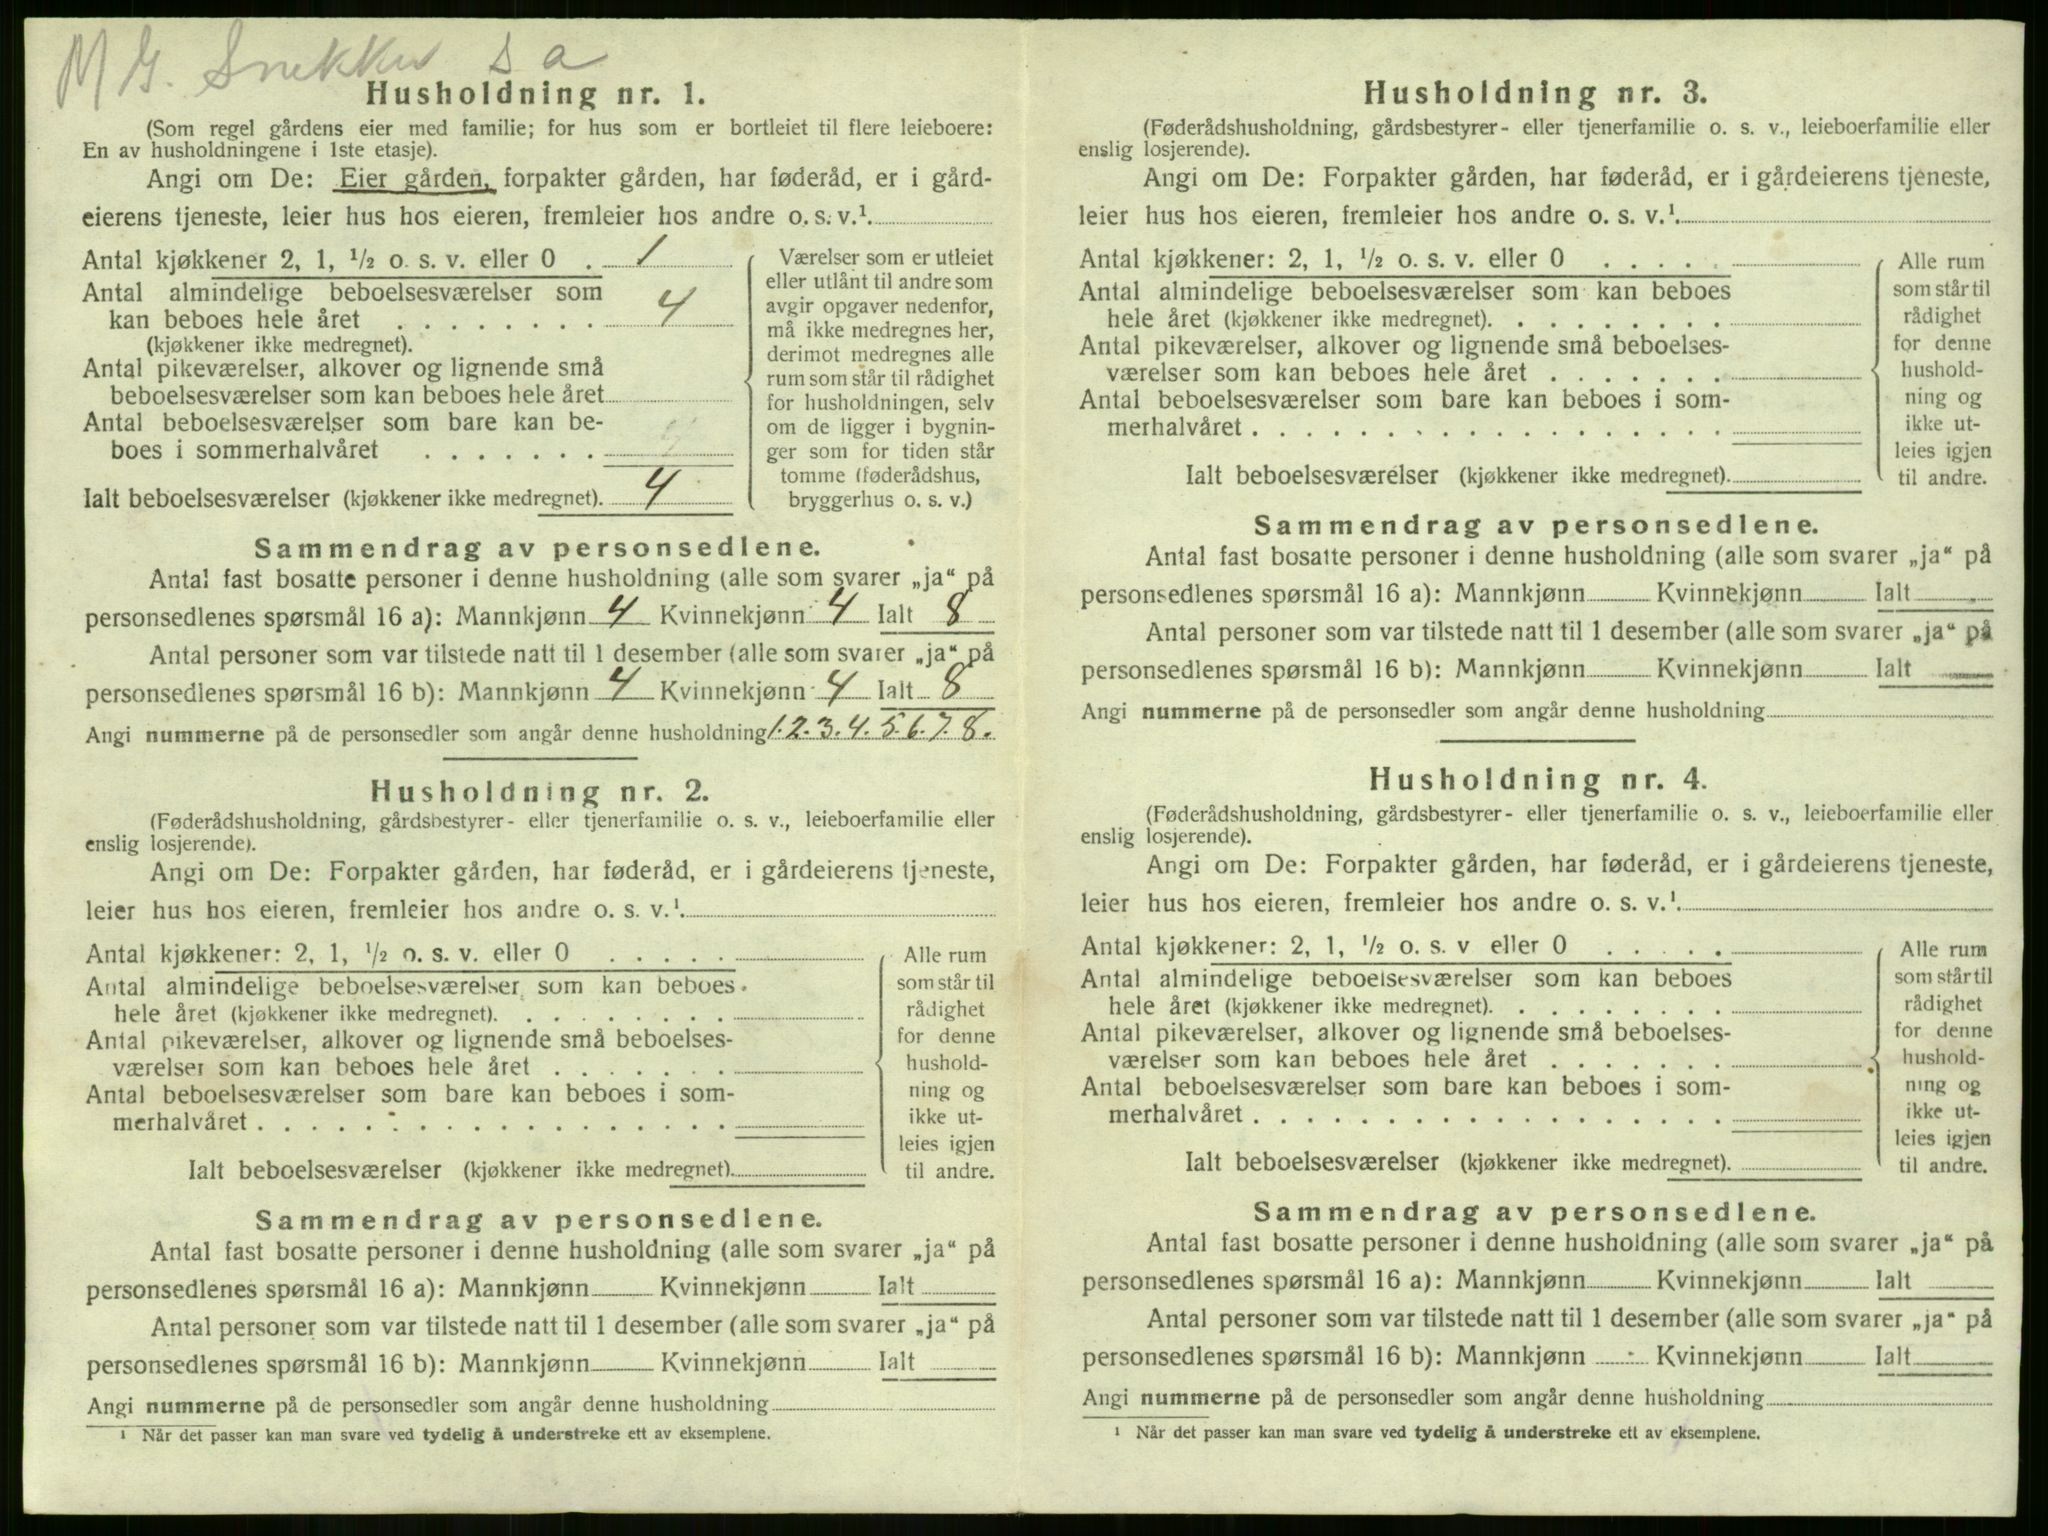 M G. Snekker S a
Husholdning nr. 1.
(Som regel gårdens eier med familie; for hus som er bortleiet til flere leieboere:
En av husholdningene i 1ste etasje).
Angi om De: Eier gården, forpakter gården, har føderåd, er i gård-
eierens tjeneste, leier hus hos eieren, fremleier hos andre o. s. v.¹.
Antal kjøkkener 2, 1, ½ o. s. v. eller 0 . 1
Antal almindelige beboelsesværelser som
kan beboes hele året . . . . . . . . 4
(kjøkkener ikke medregnet).
Antal pikeværelser, alkover og lignende små
beboelsesværelser som kan beboes hele året
Antal beboelsesværelser som bare kan be-
boes i sommerhalvåret . . . . . . .
Ialt beboelsesværelser (kjøkkener ikke medregnet). 4
Værelser som er utleiet
eller utlånt til andre som
avgir opgaver nedenfor,
må ikke medregnes her,
derimot medregnes alle
rum som står til rådighet
for husholdningen, selv
om de ligger i bygnin-
ger som for tiden står
tomme (føderådshus,
bryggerhus o. s. v.)
Sammendrag av personsedlene.
Antal fast bosatte personer i denne husholdning (alle som svarer „ja“ på
personsedlenes spørsmål 16 a): Mannkjønn 4 Kvinnekjønn 4 Ialt 8
Antal personer som var tilstede natt til 1 desember (alle som svarer „ja“ på
personsedlenes spørsmål 16 b): Mannkjønn 4 Kvinnekjønn 4 Ialt 8
Angi nummerne på de personsedler som angår denne husholdning 1.2.3.4.5.6.7.8.
Husholdning nr. 2.
(Føderådshusholdning, gårdsbestyrer- eller tjenerfamilie o. s. v., leieboerfamilie eller
enslig losjerende).
Angi om De: Forpakter gården, har føderåd, er i gårdeierens tjeneste,
leier hus hos eieren, fremleier hos andre o. s. v.¹.
Antal kjøkkener: 2, 1, ½ o. s. v. eller 0 . . . . .
Antal almindelige beboelsesværelser som kan beboes
hele året (kjøkkener ikke medregnet). . . . . . . . .
Antal pikeværelser, alkover og lignende små beboelses-
værelser som kan beboes hele året . . . . . . .
Antal beboelsesværelser som bare kan beboes i som-
merhalvåret . . . . . . . . . . . . . . . . . .
Ialt beboelsesværelser (kjøkkener ikke medregnet).
Alle rum
som står til
rådighet
for denne
hushold-
ning og
ikke ut-
leies igjen
til andre.
Sammendrag av personsedlene.
Antal fast bosatte personer i denne husholdning (alle som svarer „ja“ på
personsedlenes spørsmål 16 a): Mannkjønn Kvinnekjønn Ialt
Antal personer som var tilstede natt til 1 desember (alle som svarer „ja“ på
personsedlenes spørsmål 16 b): Mannkjønn Kvinnekjønn Ialt
Angi nummerne på de personsedler som angår denne husholdning
¹ Når det passer kan man svare ved tydelig å understreke ett av eksemplene.
Husholdning nr. 3.
(Føderådshusholdning, gårdsbestyrer- eller tjenerfamilie o. s. v., leieboerfamilie eller
enslig losjerende).
Angi om De: Forpakter gården, har føderåd, er i gårdeierens tjeneste,
leier hus hos eieren, fremleier hos andre o. s. v.¹.
Antal kjøkkener: 2, 1, ½ o. s. v. eller 0 . . . . .
Antal almindelige beboelsesværelser som kan beboes
hele året (kjøkkener ikke medregnet). . . . . . . . .
Antal pikeværelser, alkover og lignende små beboelses-
værelser som kan beboes hele året . . . . . . .
Antal beboelsesværelser som bare kan beboes i som-
merhalvåret . . . . . . . . . . . . . . . . . .
Ialt beboelsesværelser (kjøkkener ikke medregnet).
Alle rum
som står til
rådighet
for denne
hushold-
ning og
ikke ut-
leies igjen
til andre.
Sammendrag av personsedlene.
Antal fast bosatte personer i denne husholdning (alle som svarer „ja“ på
personsedlenes spørsmål 16 a): Mannkjønn Kvinnekjønn Ialt
Antal personer som var tilstede natt til 1 desember (alle som svarer „ja“ på
personsedlenes spørsmål 16 b): Mannkjønn Kvinnekjønn Ialt
Angi nummerne på de personsedler som angår denne husholdning
Husholdning nr. 4.
(Føderådshusholdning, gårdsbestyrer- eller tjenerfamilie o. s. v., leieboerfamilie eller
enslig losjerende).
Angi om De: Forpakter gården, har føderåd, er i gårdeierens tjeneste,
leier hus hos eieren, fremleier hos andre o. s. v.¹.
Antal kjøkkener: 2, 1, ½ o. s. v eller 0 . . . . .
Antal almindelige beboelsesværelser som kan beboes
hele året (kjøkkener ikke medregnet). . . . . . . . .
Antal pikeværelser, alkover og lignende små beboelses-
værelser som kan beboes hele året . . . . . . .
Antal beboelsesværelser som bare kan beboes i som-
merhalvåret . . . . . . . . . . . . . . . . . .
Ialt beboelsesværelser (kjøkkener ikke medregnet).
Alle rum
som står til
rådighet
for denne
hushold-
ning og
ikke ut-
leies igjen
til andre.
Sammendrag av personsedlene.
Antal fast bosatte personer i denne husholdning (alle som svarer „ja“ på
personsedlenes spørsmål 16 a): Mannkjønn Kvinnekjønn Ialt
Antal personer som var tilstede natt til 1 desember (alle som svarer „ja“ på
personsedlenes spørsmål 16 b): Mannkjønn Kvinnekjønn Ialt
Angi nummerne på de personsedler som angår denne husholdning
¹ Når det passer kan man svare ved tydelig å understreke ett av eksemplene.